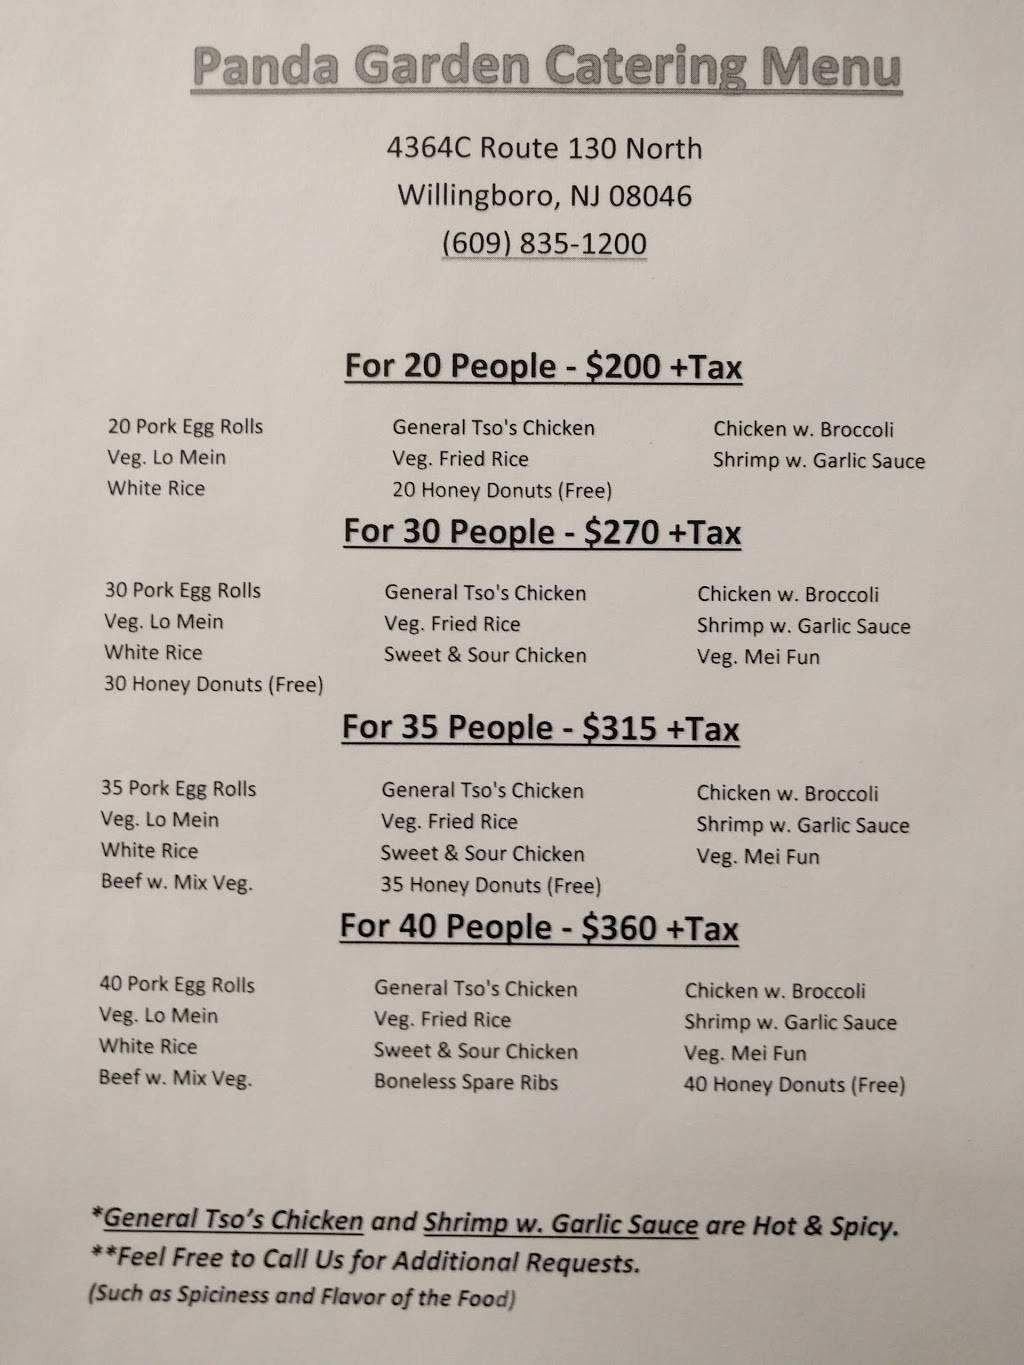 Panda Garden Catering Menu
4364C Route 130 North
Willingboro, NJ 08046
(609) 835-1200
For 20 People - $200 +Tax
20 Pork Egg Rolls General Tso's Chicken Chicken w. Broccoli
Veg. Lo Mein Veg. Fried Rice Shrimp w. Garlic Sauce
White Rice 20 Honey Donuts (Free)
For 30 People - $270 +Tax
30 Pork Egg Rolls General Tso's Chicken Chicken w. Broccoli
Veg. Lo Mein Veg. Fried Rice Shrimp w. Garlic Sauce
White Rice Sweet & Sour Chicken Veg. Mei Fun
30 Honey Donuts (Free)
For 35 People - $315 +Tax
35 Pork Egg Rolls General Tso's Chicken Chicken w. Broccoli
Veg. Lo Mein Veg. Fried Rice Shrimp w. Garlic Sauce
White Rice Sweet & Sour Chicken Veg. Mei Fun
Beef w. Mix Veg. 35 Honey Donuts (Free)
For 40 People - $360 +Tax
40 Pork Egg Rolls General Tso's Chicken Chicken w. Broccoli
Veg. Lo Mein Veg. Fried Rice Shrimp w. Garlic Sauce
White Rice Sweet & Sour Chicken Veg. Mei Fun
Beef w. Mix Veg. Boneless Spare Ribs 40 Honey Donuts (Free)
*General Tso's Chicken and Shrimp w. Garlic Sauce are Hot & Spicy.
**Feel Free to Call Us for Additional Requests.
(Such as Spiciness and Flavor of the Food)